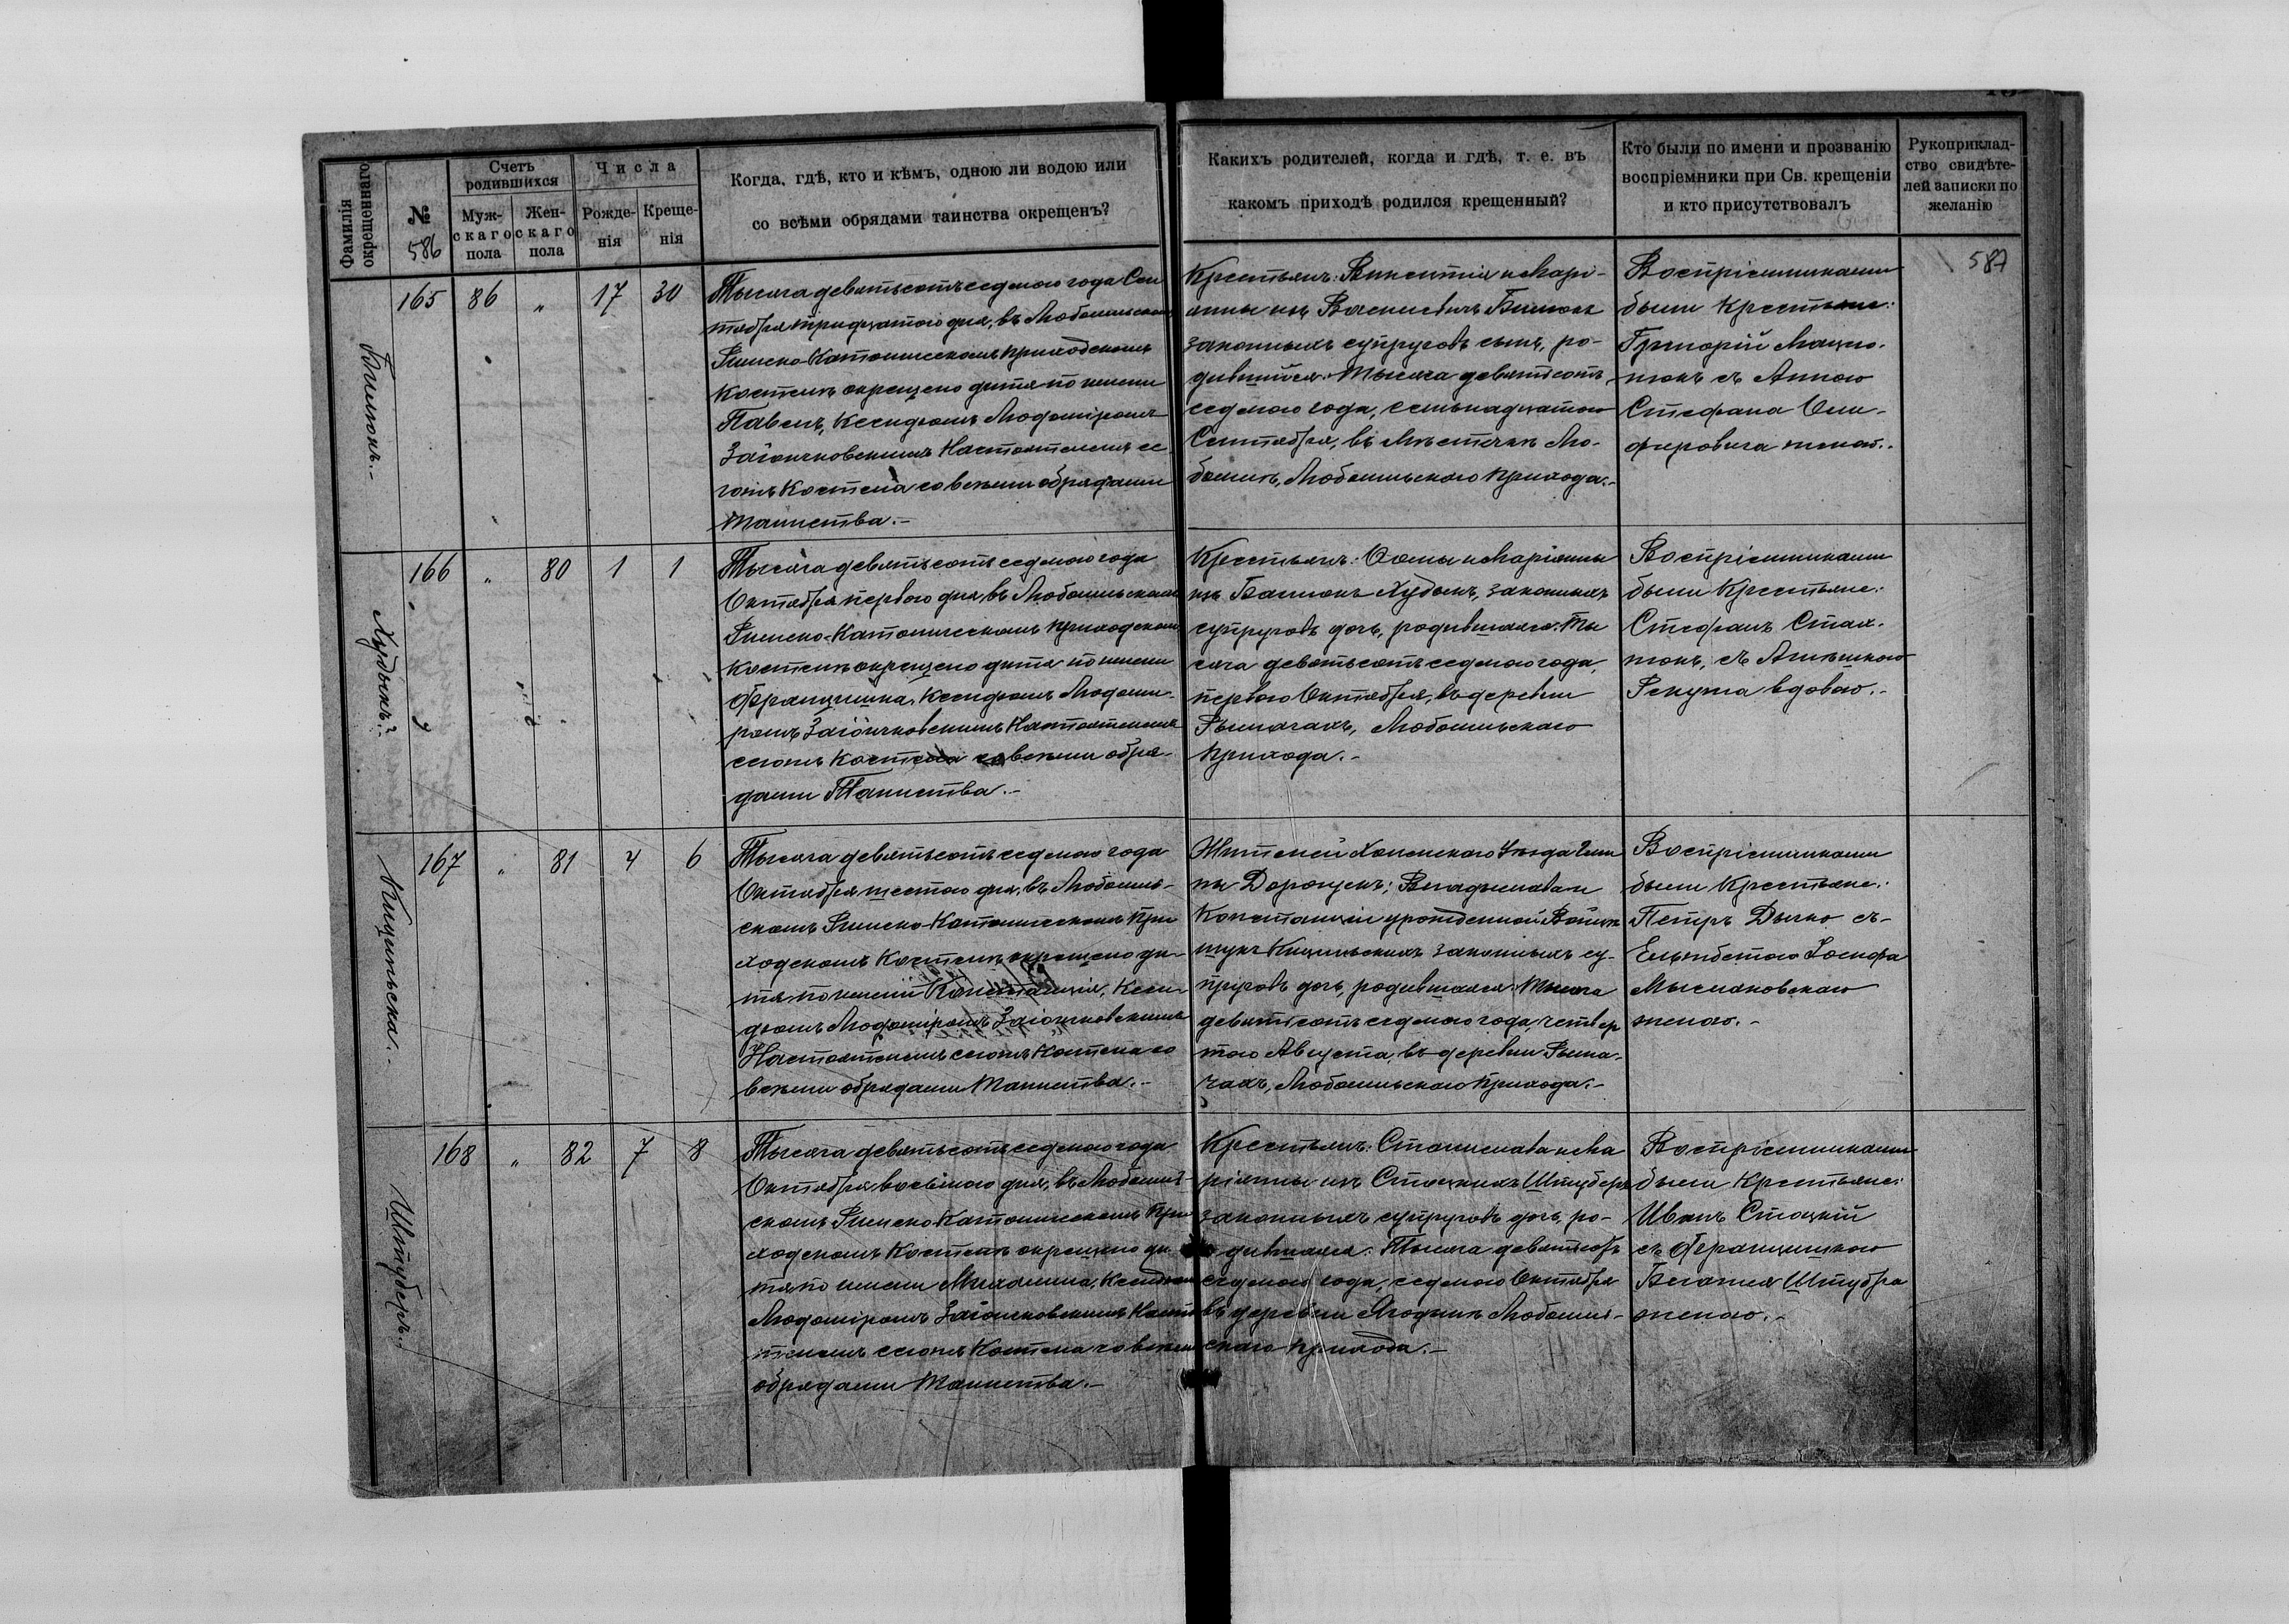 Фамилія
окрещеннаго
№
586
Счетъ
родившихся
Муж-
скаго
пола
Жен-
скаго
пола
Числа
Рожде-
нія
Креще-
нія
Когда, гдѣ, кто и кѣмъ, одною ли водою или
со всѣми обрядами таинства окрещенъ?
Какихъ родителей, когда и гдѣ, т. е. въ
какомъ приходѣ родился крещенный?
Кто были по имени и прозванію
воспріемники при Св. крещеніи
и кто присутствовалъ
Рукоприклад-
ство свидѣте-
лей записки по
желанію
587
165 86 „ 17 30
Тысяча девятьсотъ седмого года Сен
тября тридцатого дня, въ Любомльскомъ
Римско-Католическомъ приходскомъ
Костелѣ окрещено дитя по имени
Павелъ, Ксендзомъ Людоміромъ
Заіончковскимъ Настоятелемъ се
гожъ Костела со всѣми обрядами
Таинства.-
Крестьянъ: Викентія и Марі-
анны изъ
законныхъ супруговъ сынъ, ро-
дившійся: Тысяча девятьсотъ
седмого года, семьнадцатого
Сентября, въ Мѣстечкѣ Лю-
бомлѣ, Любомльскаго прихода.-
Воспріемниками
были Крестьяне:
Григорій
съ Анною
Стефана
женою.-
166 „ 80 1 1
Худыкъ
Тысяча девятьсотъ седмого года
Октября первого дня, въ Любомльскомъ
Римско-Католическомъ приходскомъ
Костелѣ окрещено дитя по имени
Францишка, Ксендзомъ Людомі-
ромъ Заіончковскимъ Настоятелемъ
сегожъ Костела со всѣми обря-
дами Таинства.-
Крестьянъ: Ѳомы и Маріанны
изъ Худыкъ, законныхъ
супруговъ дочь, родившаяся: Ты
сяча девятьсотъ седмого года,
первого Октября, въ деревни
Рымачахъ, Любомльскаго
прихода.-
Воспріемниками
были Крестьяне:
Стефанъ
съ
вдовою.-
167 „ 81 4 6
Тысяча девятьсотъ седмого года
Октября шестого дня, въ Любомль-
скомъ Римско-Католическомъ При
ходскомъ Костелѣ окрещено ди-
тя по имени Констанція, Ксен-
дзомъ Людоміромъ Заіончковскимъ
Настоятелемъ сегожъ Костела со
всѣми обрядами Таинства.-
Жителей Холмского Уѣзда Гми
ны Владислава и
Констанціи урожденной
законныхъ су-
пруговъ дочь, родившаяся: Тысяча
девятьсотъ седмого года, четвер
того Августа, въ деревни Рыма-
чахъ, Любомльскаго прихода.-
Воспріемниками
были Крестьяне:
Петръ Дычко съ-
Елизбетою Іосифа
женою.-
168 „ 82 7 8
Штуберъ.-
Тысяча девятьсотъ седмого года
Октября восьмого дня, въ Любомль-
скомъ Римско-Католическомъ При
ходскомъ Костелѣ окрещено ди-
тя по имени Михалина, Ксендзомъ
Людоміромъ Заіончковскимъ Настоя
телемъ сегожъ Костела со всѣми
обрядами Таинства.-
Крестьянъ: Станислава и Ма
ріанны изъ Стоцкихъ Штуберъ
законныхъ супруговъ дочь, ро-
дившаяся: Тысяча девятьсотъ
седмого года, седмого Октября
въ деревни Ягодинъ Любомль-
скаго прихода.-
Воспріемниками
были Крестьяне:
Иванъ Стоцкій
съ Францишкою
Штубра
женою.-